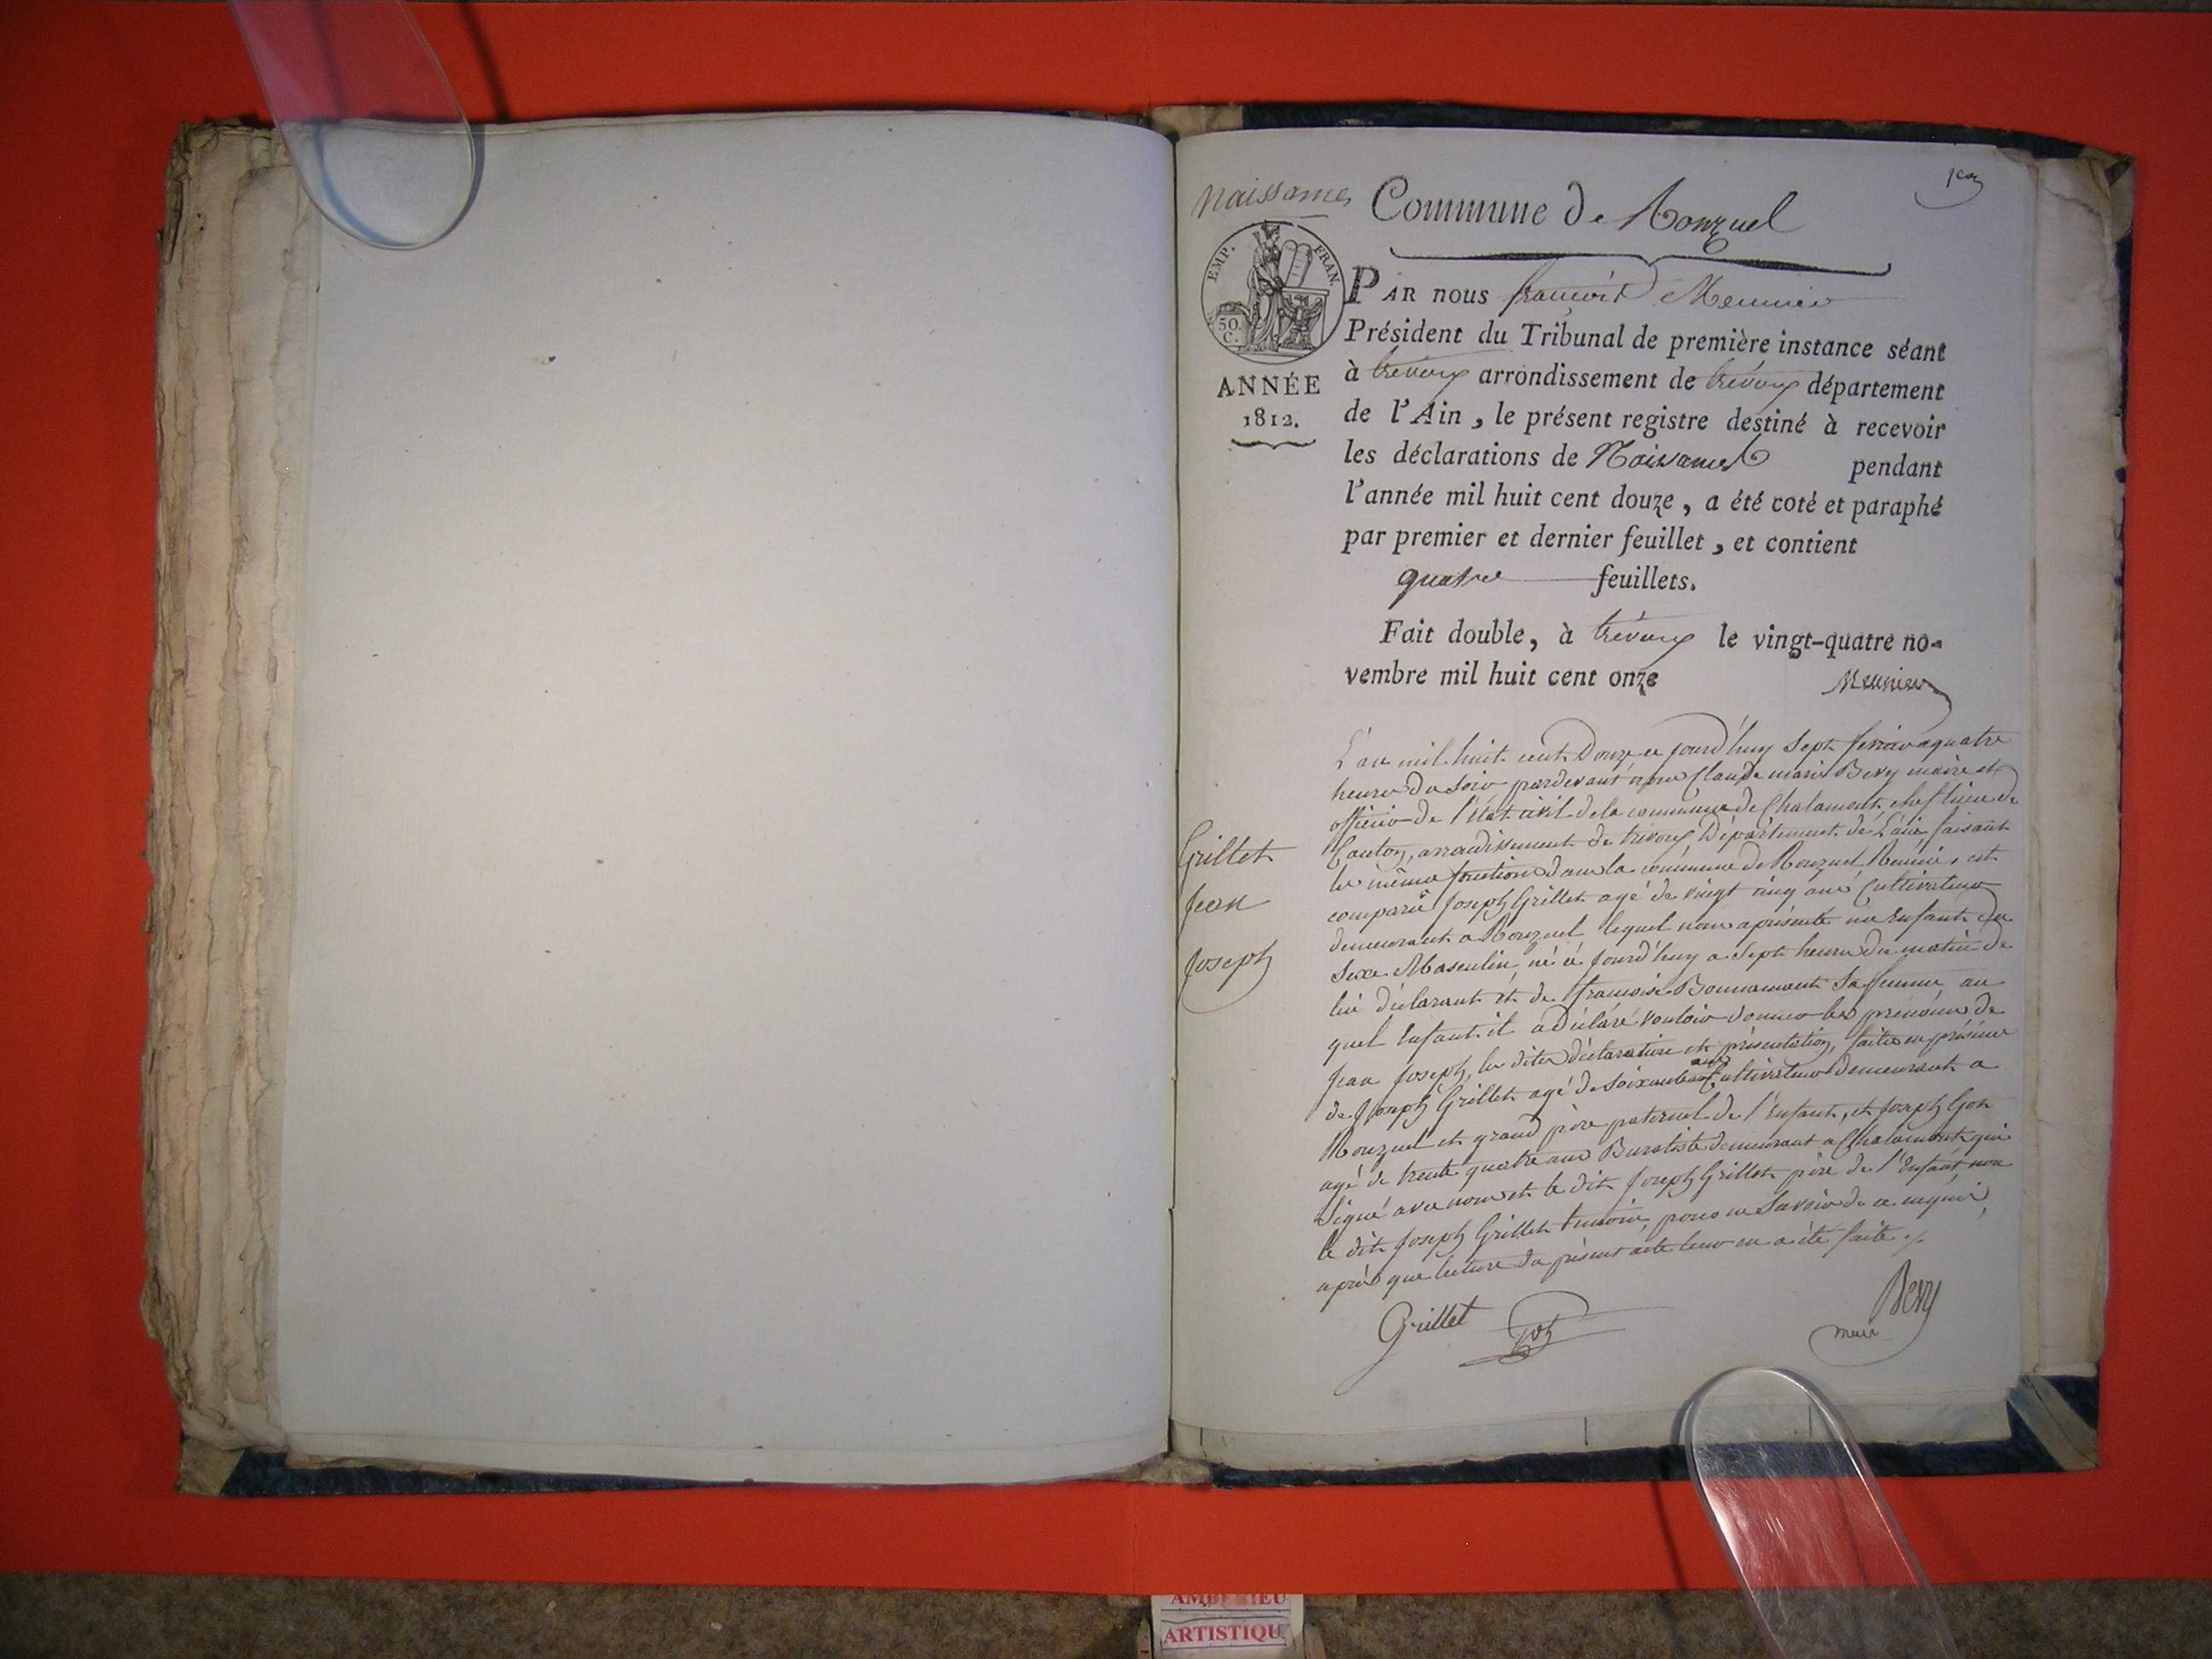 Naissances
1er
Commune de Ronzuel
EMP. FRAN.
50. C.
ANNÉE
1812.
PAR nous françois Meunier
Président du Tribunal de première instance séant
à trévoux arrondissement de trévoux département
de l'Ain, le présent registre destiné à recevoir
les déclarations de Naissances pendant
l'année mil huit cent douze, a été coté et paraphé
par premier et dernier feuillet, et contient
quatre feuillets.
Fait double, à trévoux le vingt-quatre no-
vembre mil huit cent onze
Meunier
Grillet
Jean
Joseph
L'an mil huit cent Douze ce jourd'huy Sept fevrier a quatre
heures du Soir pardevant nous Claude marie Bevy maire et
officier de l'état civil de la commune de Chalamont, chef lieu de
Canton, arrondissement de trévoux Département de L'ain faisant
les mêmes fonctions dans la commune de Ronzuel Réunie, est
comparu Joseph Grillet agé de vingt cinq ans Cultivateur
demeurant a Ronzuel lequel nous a présenté un Enfant du
Sexe Masculin, né ce jourd'huy a Sept heures du matin de
lui déclarant et de francoise Bonnamout Sa femme, au
quel Enfant il a Déclaré vouloir donner les prénoms de
Jean Joseph, les dites déclaration et présentation, faites en présence
de Joseph Grillet agé de Soixante ans Cultivateur demeurant a
Ronzuel et grand père paternel de l'Enfant, et Joseph Gon
agé de trente quatre ans Buraliste demeurant a Chalamont qui
Signé avec nous et le dit Joseph Grillet père de l'Enfant, non
le dit Joseph Grillet temoin, pour ne Savoir de ce enquis,
après que lecture du présent acte leur en a été faite ./.
Grillet
Bevy
maire
AMBERIEU
ARTISTIQU